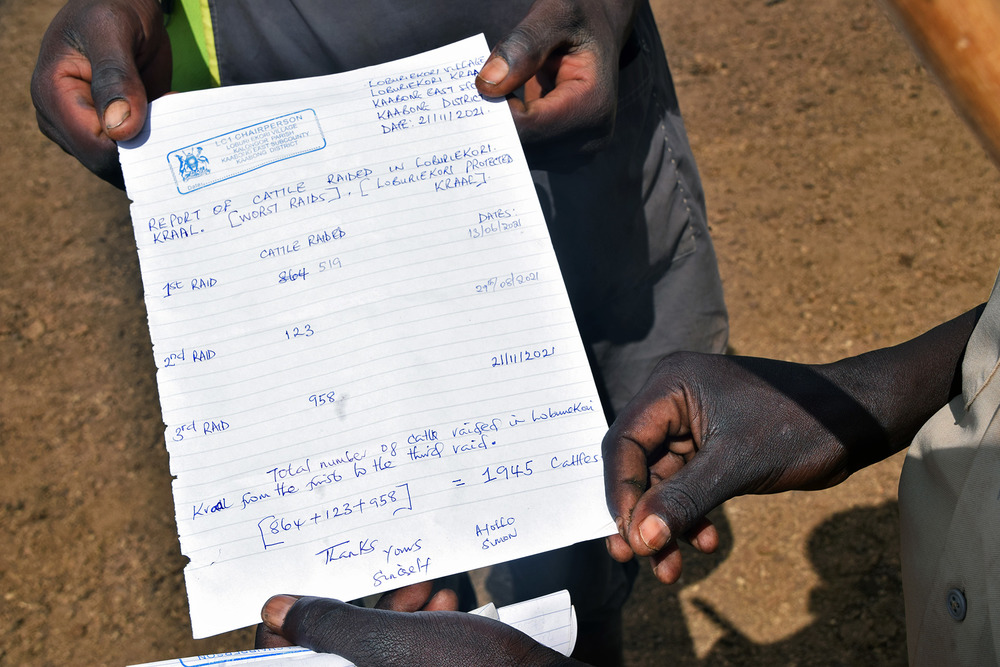 LOBURIEKORI VILLAGE
LOBURIEKORI KRAAL
KAABONG EAST S/C
KAABONG DISTRICT
DATE: 21/11/2021.
LC1 CHAIRPERSON
LOBURIEKORI VILLAGE
PARISH
KAABONG EAST SUBCOUNTY
KAABONG DISTRICT
Date:
REPORT OF CATTLE RAIDED IN LOBURIEKORI.
KRAAL. [WORST RAIDS]. [LOBURIEKORI PROTECTED
KRAAL].
CATTLE RAIDED DATES:
1st RAID 864 519 13/06/2021
2nd RAID 123 29th/08/2021
3rd RAID 958 21/11/2021
Total number of cattle raided in Loburiekori
Kraal from the first to the third raid.
[864+123+958] = 1945 Cattles
Thanks Yours